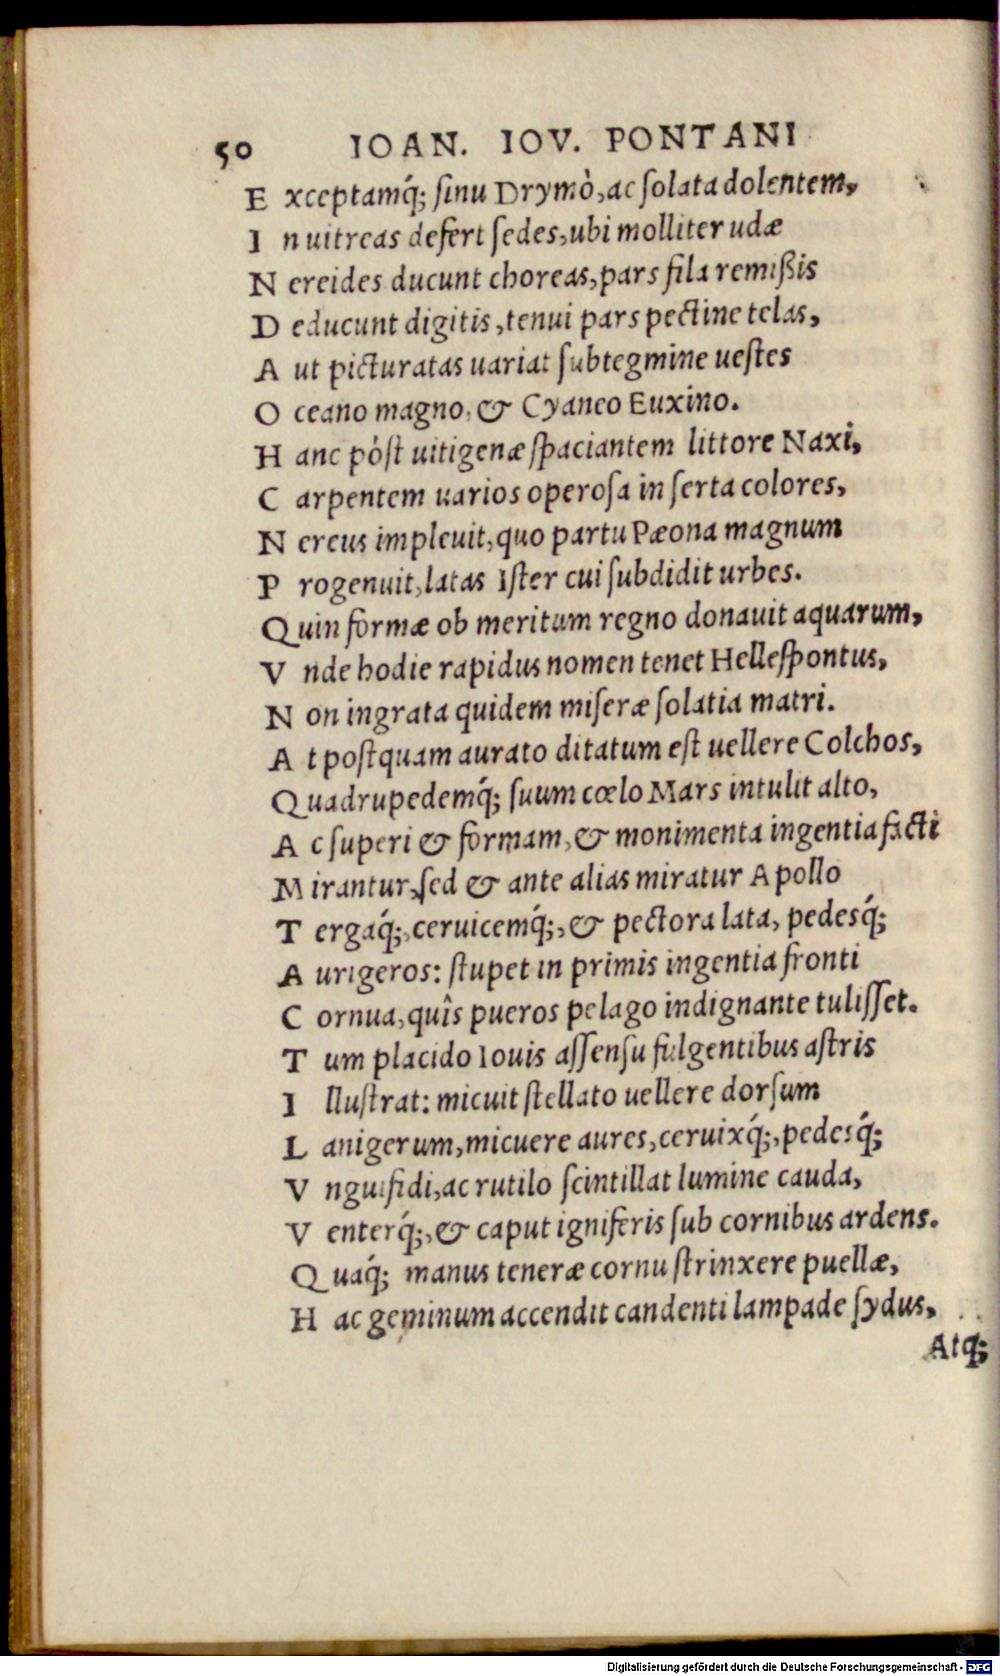 50 IOAN. IOV. PONTANI
E xceptamq́; ſinu Drymò, ac ſolata dolentem,
I n uitreas defert ſedes, ubi molliter udæ
N ereides ducunt choreas, pars fila remißis
D educunt digitis, tenui pars pectine telas,
A ut picturatas uariat ſubtegmine ueſtes
O ceano magno, & Cyaneo Euxino.
H anc pòſt uitigenæ ſpaciantem littore Naxi,
C arpentem uarios operoſa in ſerta colores,
N ereus impleuit, quo partu Pæona magnum
P rogenuit, latas Iſter cui ſubdidit urbes.
Q uin formæ ob meritum regno donauit aquarum,
V nde hodie rapidus nomen tenet Helleſpontus,
N on ingrata quidem miſeræ ſolatia matri.
A t poſtquam aurato ditatum eſt uellere Colchos,
Q uadrupedemq́; ſuum cœlo Mars intulit alto,
A c ſuperi & formam, & monimenta ingentia facti
M irantur, ſed & ante alias miratur Apollo
T ergaq́;, ceruicemq́;, & pectora lata, pedesq́;
A urigeros: ſtupet in primis ingentia fronti
C ornua, quîs pueros pelago indignante tuliſſet.
T um placido Iouis aſſenſu fulgentibus aſtris
I lluſtrat: micuit ſtellato uellere dorſum
L anigerum, micuere aures, ceruixq́;, pedesq́;
V nguifidi, ac rutilo ſcintillat lumine cauda,
V enterq́;, & caput igniferis ſub cornibus ardens.
Q uaq́; manus teneræ cornu ſtrinxere puellæ,
H ac geminum accendit candenti lampade ſydus,
Atq́;
Digitalisierung gefördert durch die Deutsche Forschungsgemeinschaft - DFG